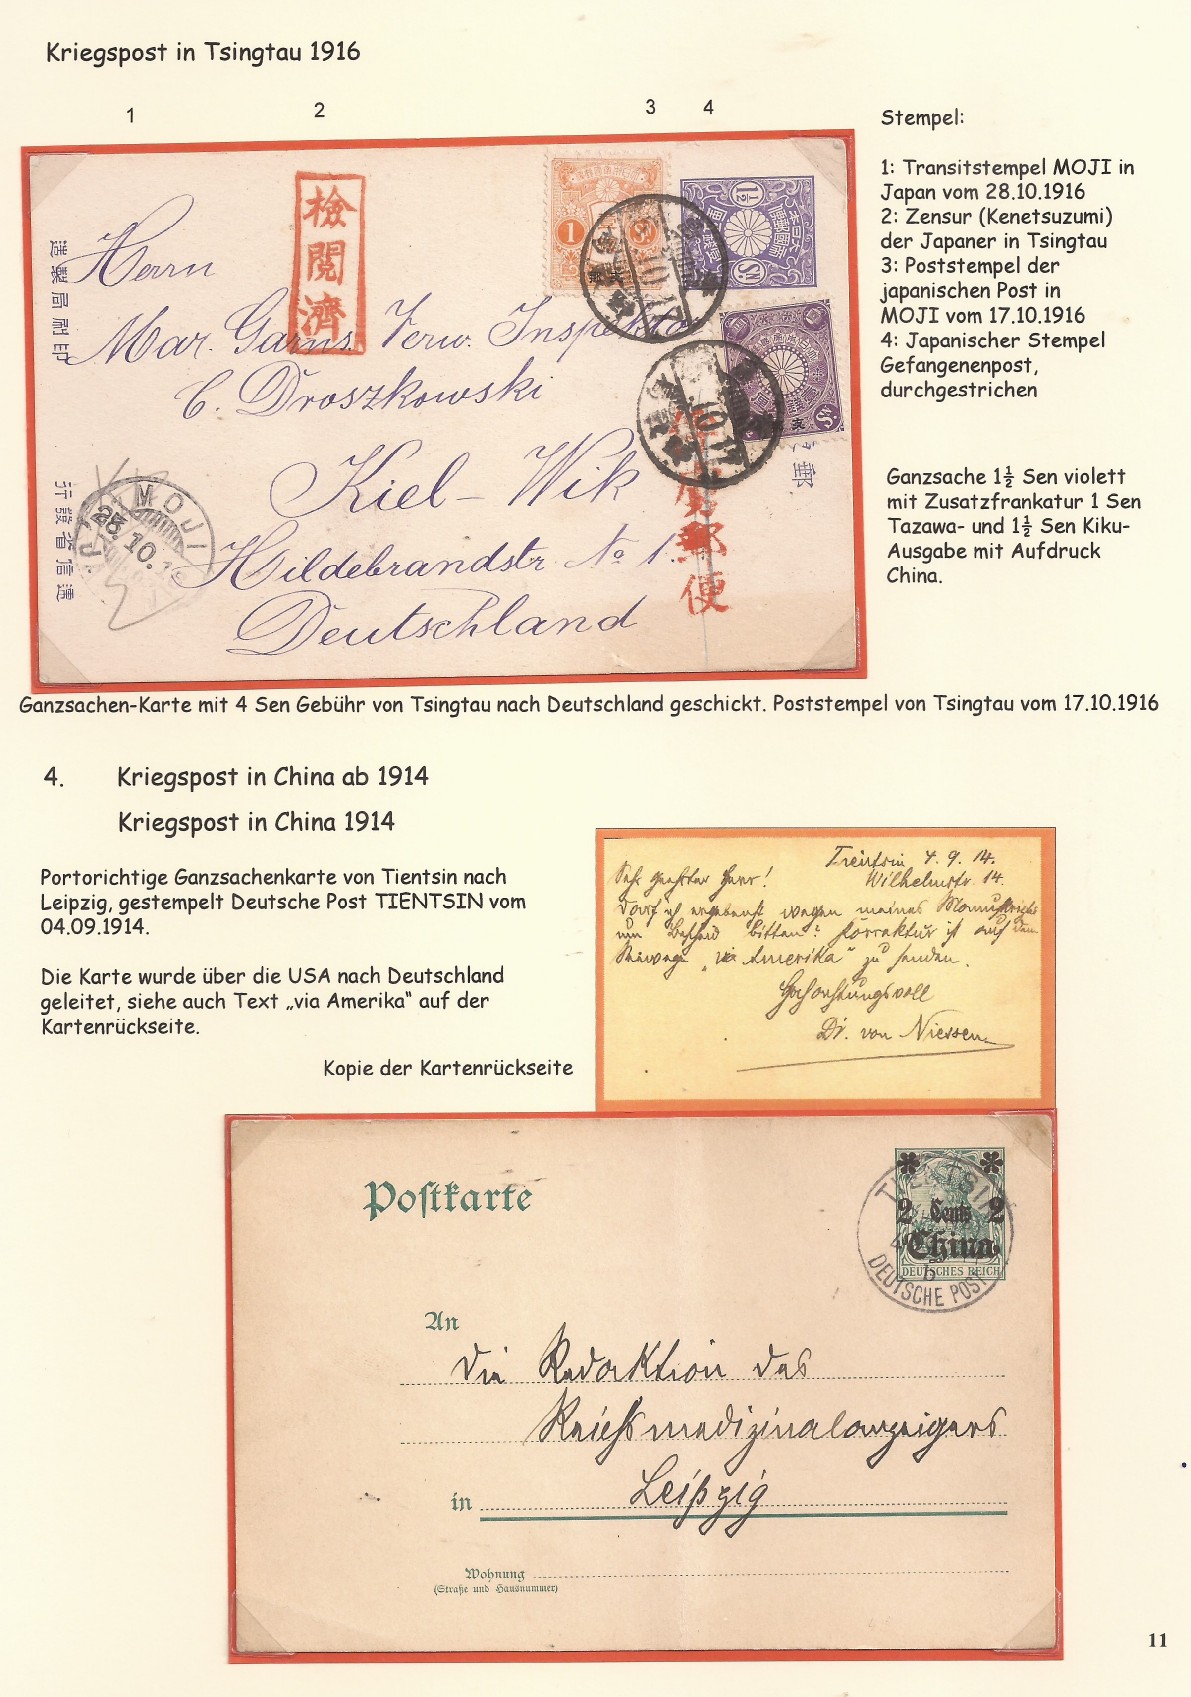 Kriegspost in Tsingtau 1916
1 2 3 4
Stempel:
1: Transitstempel MOJI in
Japan vom 28.10.1916
2: Zensur (Kenetsuzumi)
der Japaner in Tsingtau
3: Poststempel der
japanischen Post in
MOJI vom 17.10.1916
4: Japanischer Stempel
Gefangenenpost,
durchgestrichen
Ganzsache 1½ Sen violett
mit Zusatzfrankatur 1 Sen
Tazawa- und 1½ Sen Kiku-
Ausgabe mit Aufdruck
China.
檢閲濟
1
1½
Sn
郵便
印刷局製造
逓信省發行
MOJI
28.10.
Herrn
Mar. Garns. Verw. Inspektor
C. Droszkowski
Kiel - Wik
Hildebrandstr No 1.
Deutschland
Ganzsachen-Karte mit 4 Sen Gebühr von Tsingtau nach Deutschland geschickt. Poststempel von Tsingtau vom 17.10.1916
4. Kriegspost in China ab 1914
Kriegspost in China 1914
Portorichtige Ganzsachenkarte von Tientsin nach
Leipzig, gestempelt Deutsche Post TIENTSIN vom
04.09.1914.
Die Karte wurde über die USA nach Deutschland
geleitet, siehe auch Text „via Amerika“ auf der
Kartenrückseite.
Kopie der Kartenrückseite
Tientsin 4. 9. 14.
Wilhelmstr. 14.
Sehr geehrter Herr!
Darf ich ergebenst wegen meines Manuskripts
um Bescheid bitten? Korrektur ist auf dem
Seewege „via Amerika“ zu senden.
Hochachtungsvoll
Dr. von Niessen
Postkarte
TIENTSIN
2 Cents 2
China
DEUTSCHES REICH
b
DEUTSCHE POST
An
die Redaktion des
Reichsmedizinalanzeigers
in Leipzig
Wohnung
(Straße und Hausnummer)
11